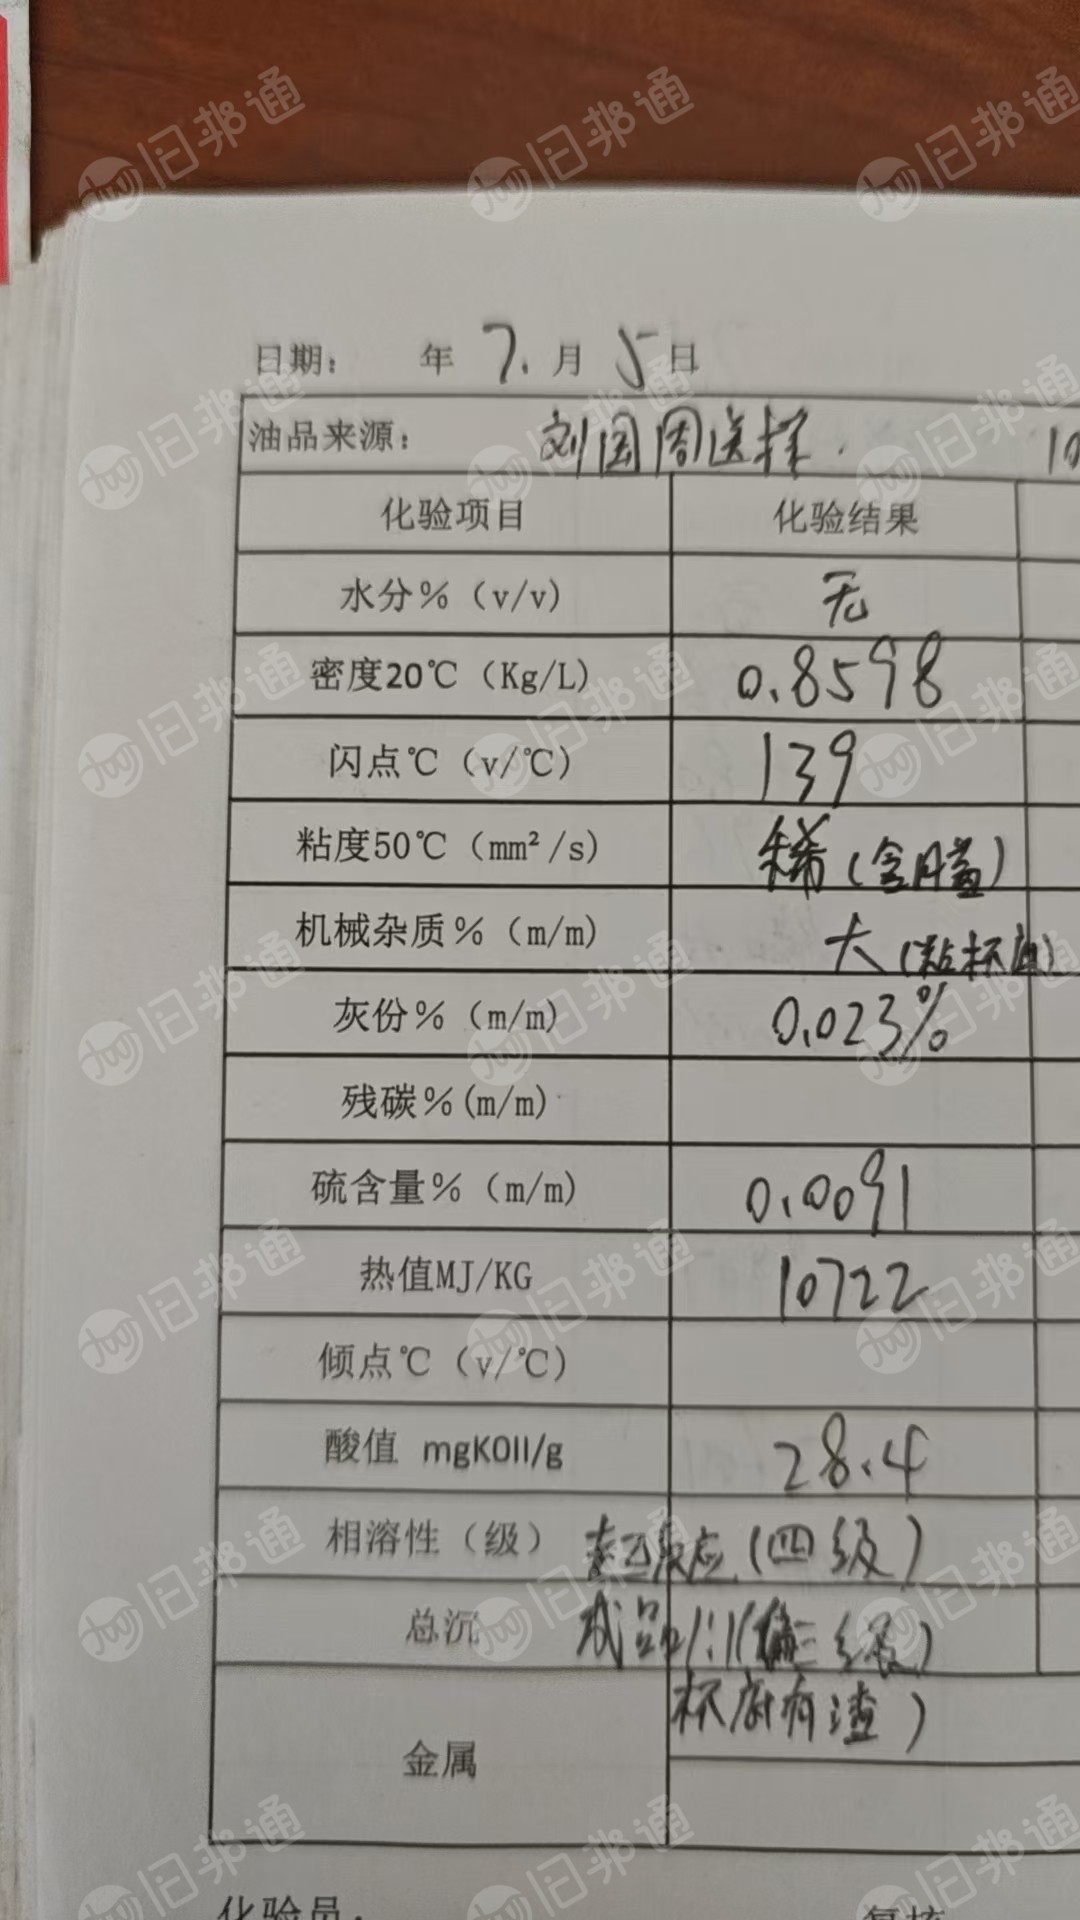 日期： 年 7. 月 5 日
油品来源： 刘国周送样. 10
化验项目 化验结果
水分％（v/v） 无
密度20℃（Kg/L） 0.8598
闪点℃（v/℃） 139
粘度50℃（mm²/s） 稀（含月益）
机械杂质％（m/m） 大（粘杯底）
灰份％（m/m） 0.023%
残碳％(m/m)
硫含量％（m/m） 0.0091
热值MJ/KG 10722
倾点℃（v/℃）
酸值 mgKOII/g 28.4
相溶性（级） 反应（四级）
总沉 成品1:1（偏三级）
杯底有渣）
金属
化验员： 复核
旧邦通